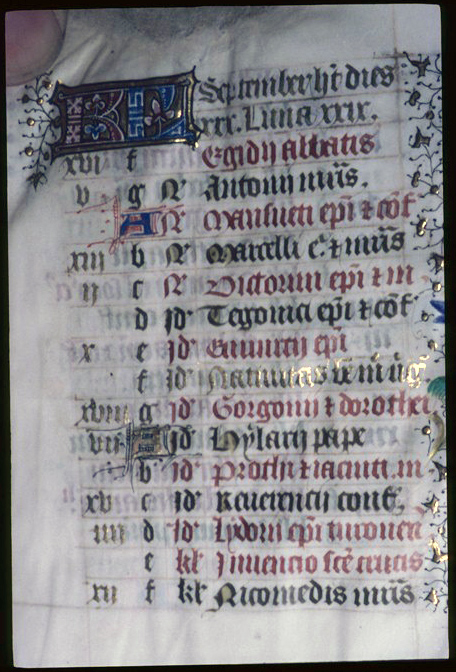 KL September ht dies
xxx. Luna xxix.
xvi f Egidij abbatis
v g N Antonij mris.
A N Mansueti epi & cof
xiii b N Marcelli & mris
ii c N Victorini epi & m
d jd Tegonici epi & cof
x e jd Euurcij epi
f jd Natiuitas be m ug
xviii g jd Gorgonij & dorothei
vii jd Hylarij pape
b jd Prothi & iacinti. m
xv c jd Reuerencij conf.
iiii d jd Lydorij epi turonen
e kl Inuencio sce crucis
xii f kl Nicomedis mris